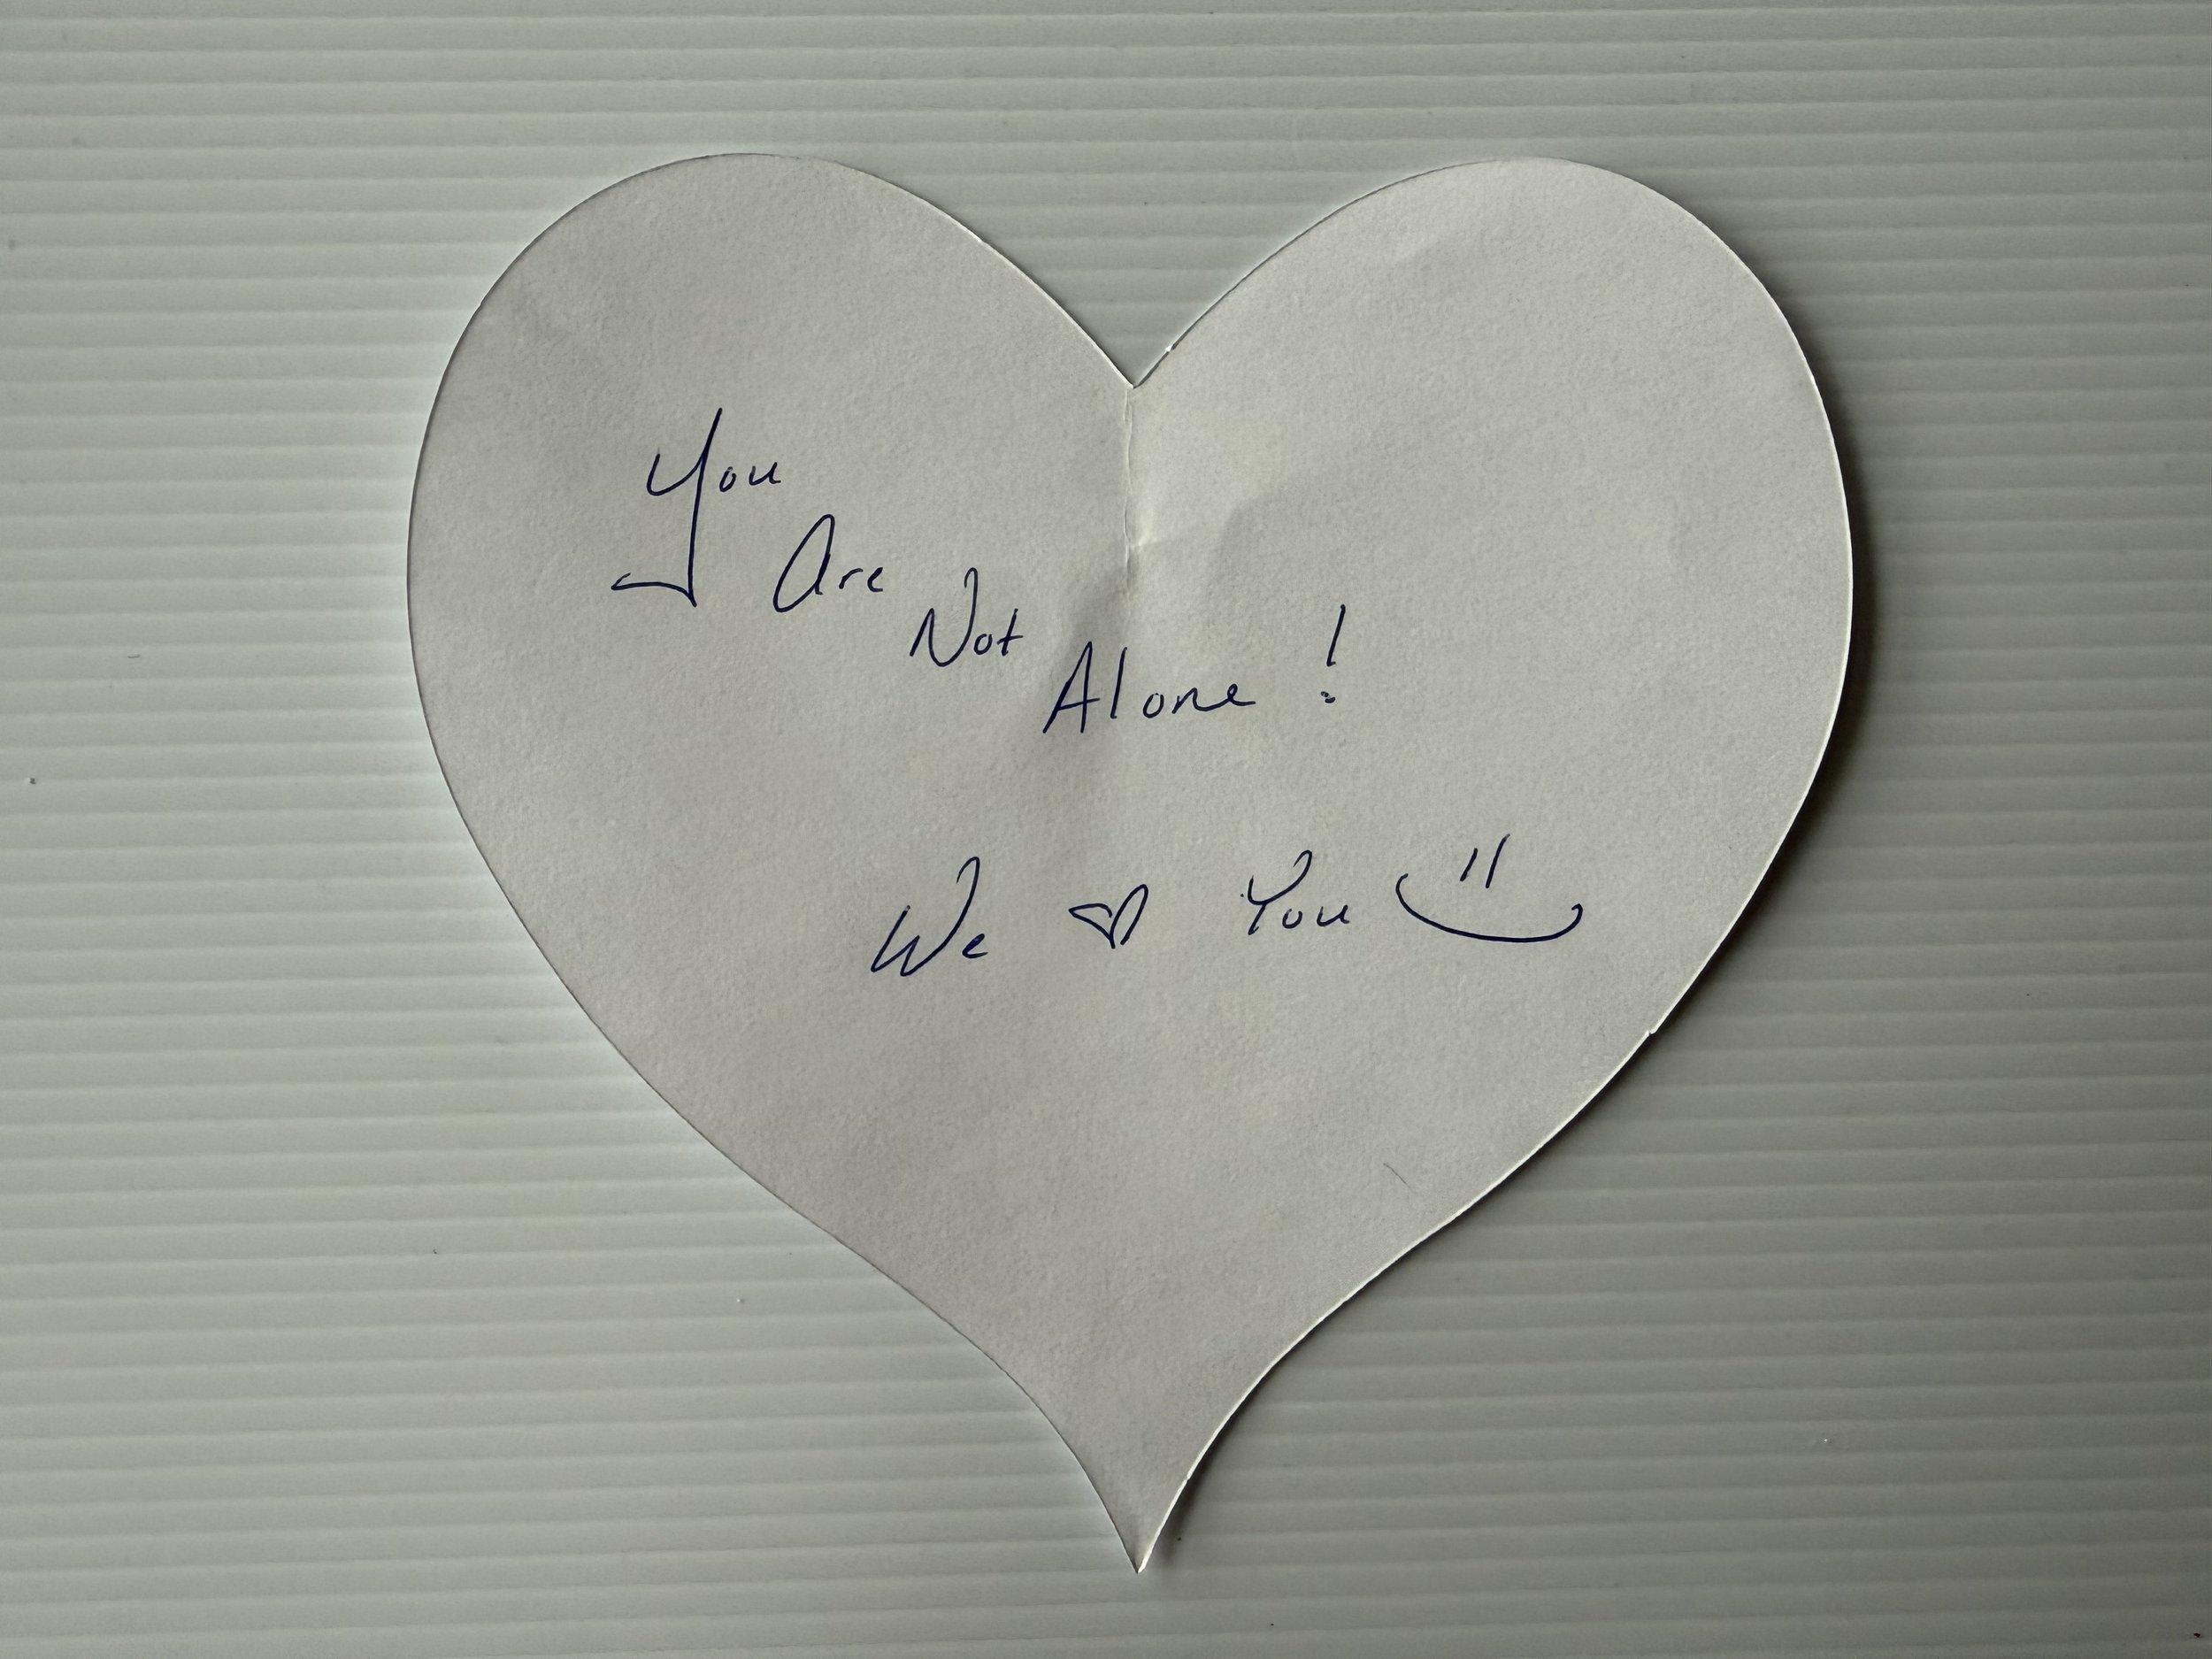 You
Are
Not
Alone !
We ♡ You